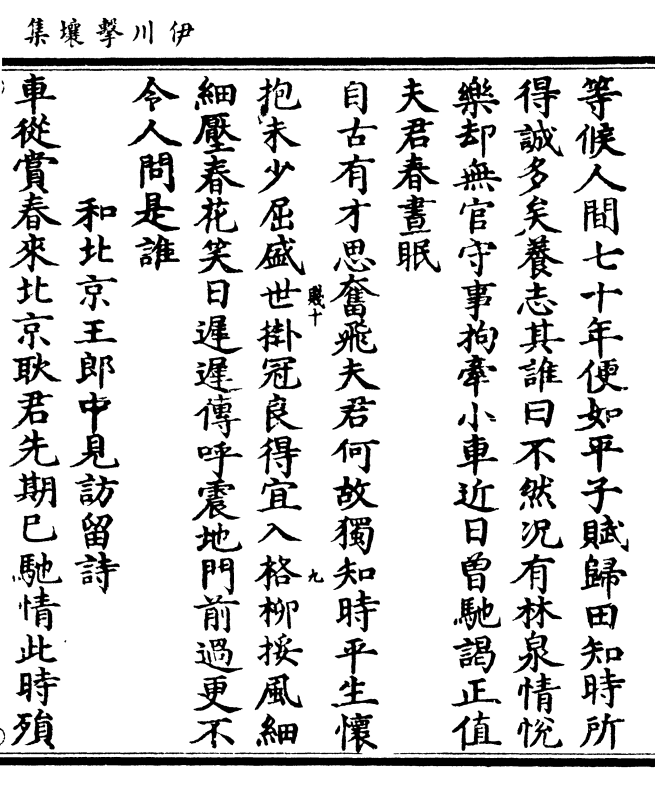 伊川擊壤集
等候人間七十年便如平子賦歸田知時所
得誠多矣養志其誰曰不然況有林泉情悅
樂却無官守事拘牽小車近日曾馳謁正值
夫君春晝眠
自古有才思奮飛夫君何故獨知時平生懷
抱未少屈盛世掛冠良得宜入格柳挼風細
細壓春花笑日遲遲傳呼震地門前過更不
令人問是誰
和北京王郎中見訪留詩
車從賞春來北京耿君先期已馳情此時殞